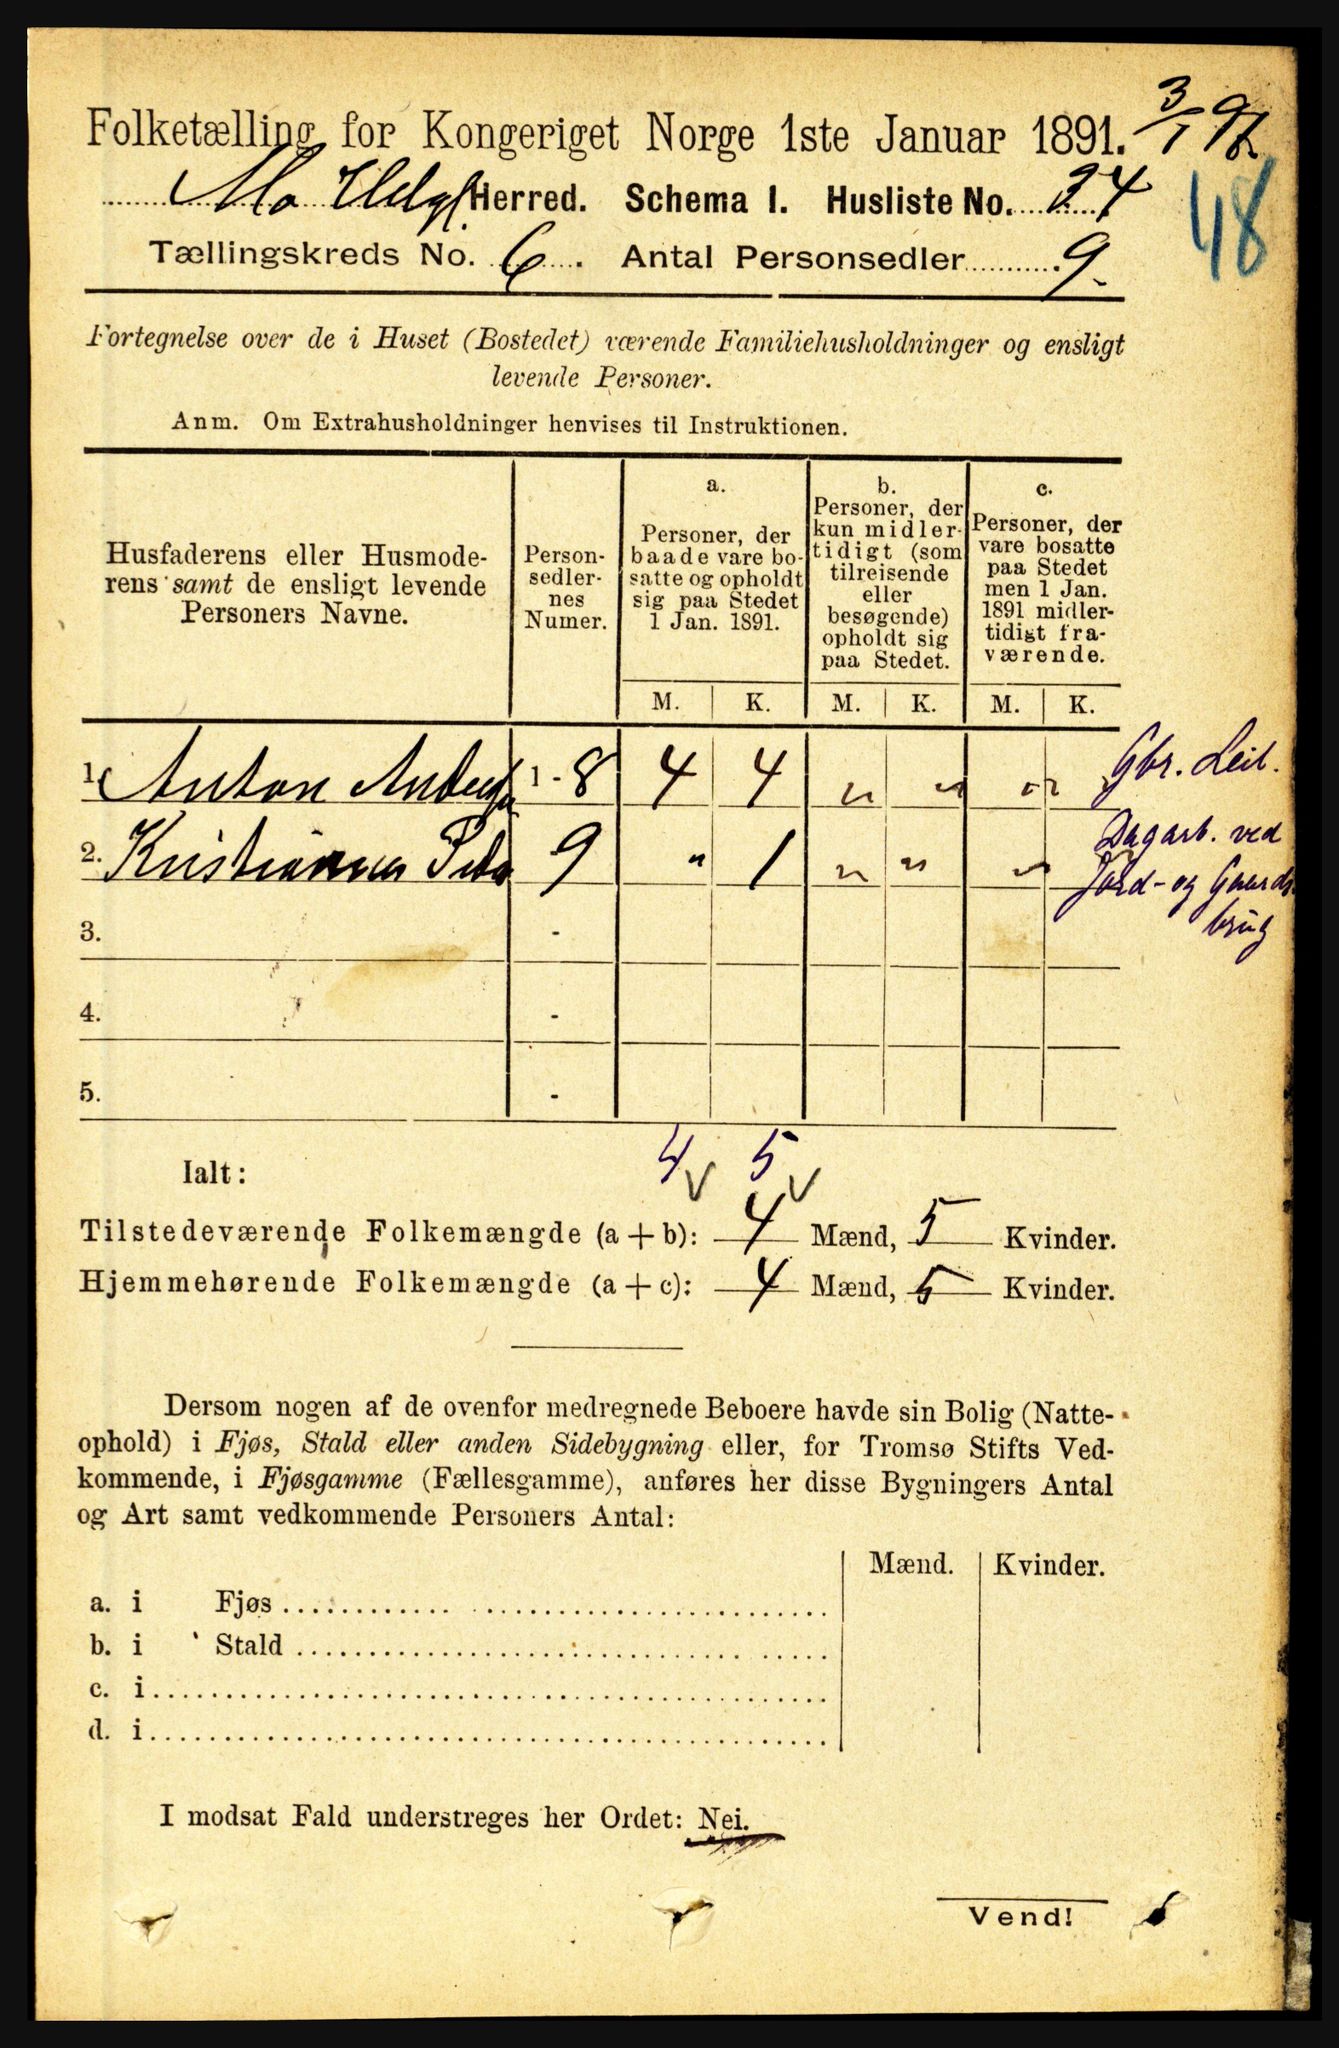 Folketælling for Kongeriget Norge 1ste Januar 1891. 3/1 92
Mo Helgl Herred. Schema 1. Husliste No. 34
48
Tællingskreds No. 6. Antal Personsedler 9.
Fortegnelse over de i Huset (Bostedet) værende Familiehusholdninger og ensligt
levende Personer.
Anm. Om Extrahusholdninger henvises til Instruktionen.
Husfaderens eller Husmoderens samt de ensligt levende Personers Navne.
Personsedlernes Numer.
a.
Personer, der
baade vare bo-
satte og opholdt
sig paa Stedet
1 Jan. 1891.
b.
Personer, der
kun midler-
tidigt (som
tilreisende
eller
besøgende)
opholdt sig
paa Stedet.
c.
Personer, der
vare bosatte
paa Stedet
men 1 Jan.
1891 midler-
tidigt fra-
værende.
M. K. M. K. M. K.
1. Anton Anders 1-8 4 4 " " " Gbr. Leil.
2. Kristianna Peder 9 " 1 " " " Dagarb. ved
Jord- og Gaards
brug
3. -
4. -
5. -
4 v 5 v
Ialt:
Tilstedeværende Folkemængde (a + b): 4 Mænd, 5 Kvinder.
Hjemmehørende Folkemængde (a + c): 4 Mænd, 5 Kvinder.
Dersom nogen af de ovenfor medregnede Beboere havde sin Bolig (Natte-
ophold) i Fjøs, Stald eller anden Sidebygning eller, for Tromsø Stifts Ved-
kommende, i Fjøsgamme (Fællesgamme), anføres her disse Bygningers Antal
og Art samt vedkommende Personers Antal:
Mænd. Kvinder.
a. i Fjøs
b. i Stald
c. i
d. i
I modsat Fald understreges her Ordet: Nei.
Vend!